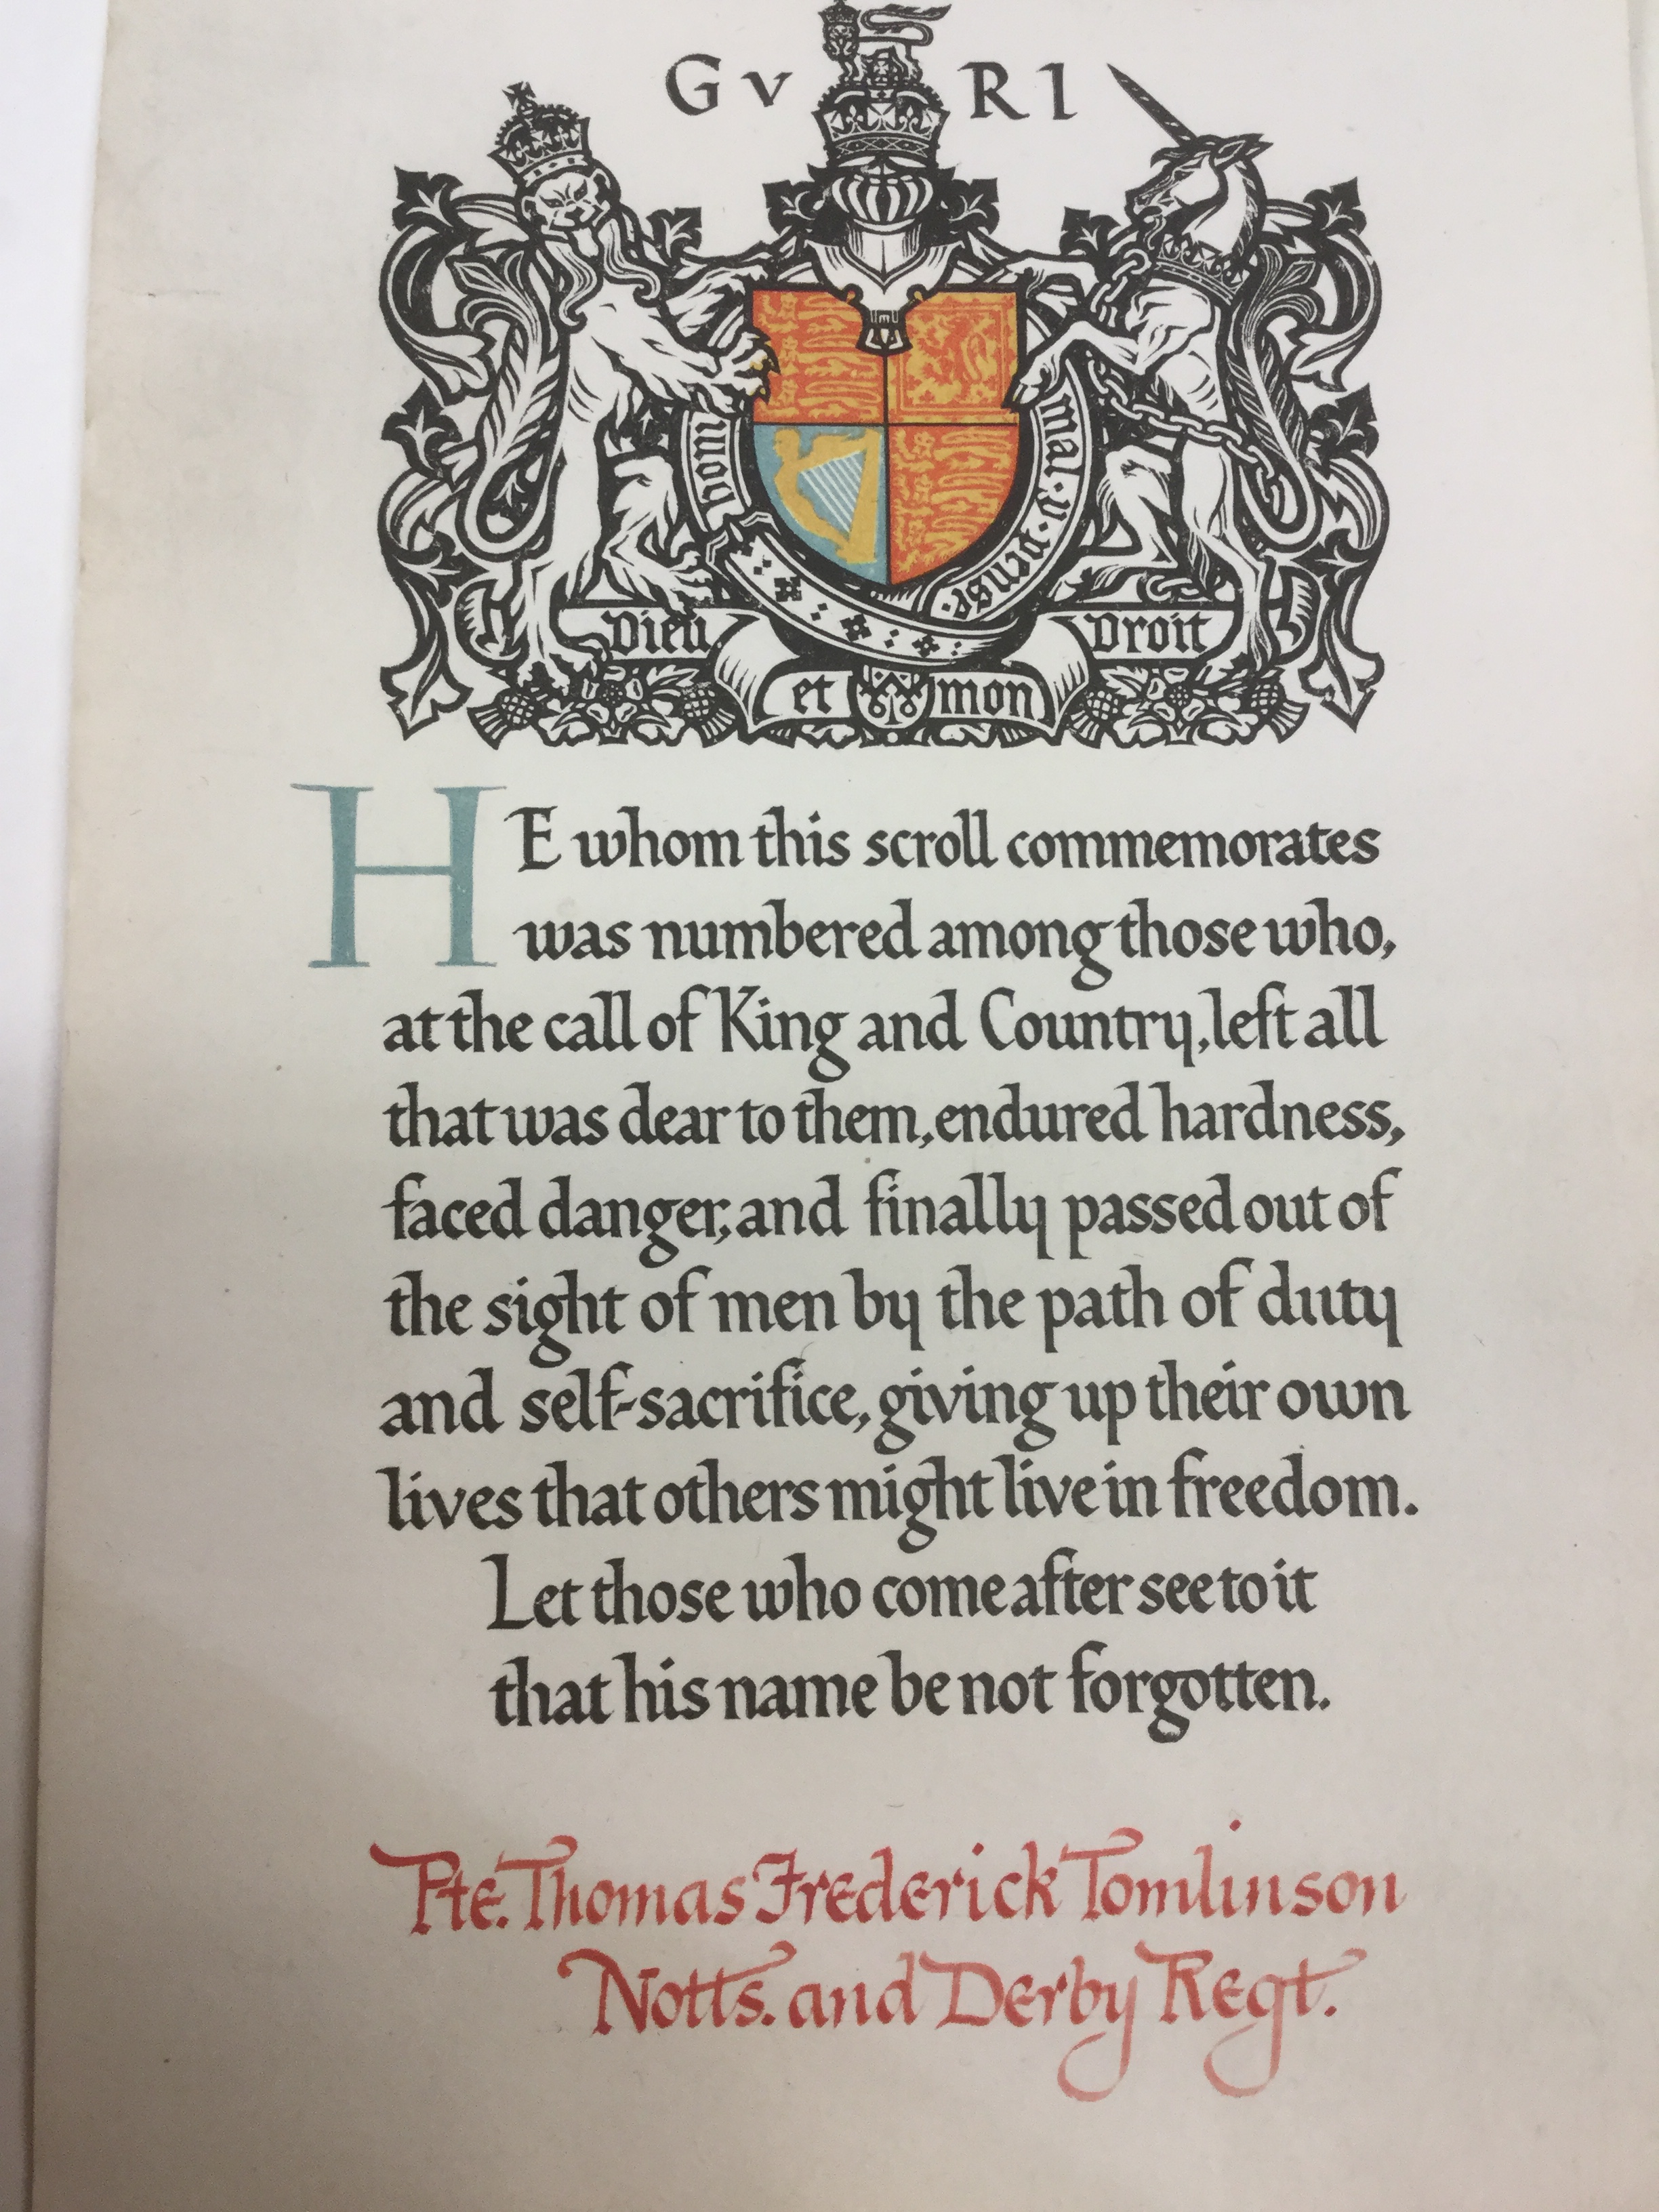 G V R I
Honi mal · y · pense ·
Dieu Droit
et mon
HE whom this scroll commemorates
was numbered among those who,
at the call of King and Country, left all
that was dear to them, endured hardness,
faced danger, and finally passed out of
the sight of men by the path of duty
and self-sacrifice, giving up their own
lives that others might live in freedom.
Let those who come after see to it
that his name be not forgotten.
Pte. Thomas Frederick Tomlinson
Notts. and Derby Regt.